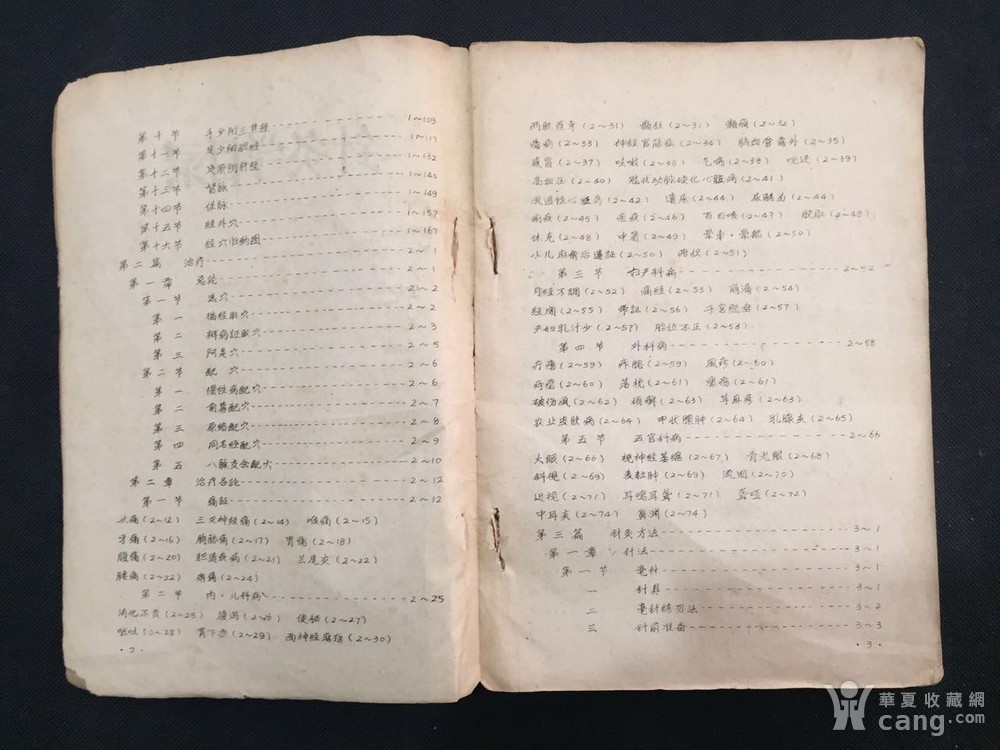 第十节 手少阳三焦经 1～109
第十一节 足少阳胆经 1～117
第十二节 足厥阴肝经 1～132
第十三节 督脉 1～140
第十四节 任脉 1～149
第十五节 经外穴 1～157
第十六节 经穴归纳图 1～167
第二篇 治疗 2～1
第一章 总论 2～1
第一节 选穴 2～2
第一 循经取穴 2～2
第二 辨病证取穴 2～3
第三 阿是穴 2～5
第二节 配穴 2～6
第一 慢性病配穴 2～6
第二 俞募配穴 2～7
第三 原络配穴 2～8
第四 同名经配穴 2～9
第五 八脉交会配穴 2～10
第二章 治疗各论 2～12
第一节 痛証 2～12
头痛(2～12) 三叉神经痛(2～14) 喉痛(2～15)
牙痛(2～16) 胸胁痛(2～17) 胃痛(2～18)
腹痛(2～20) 胆道疾病(2～21) 兰尾炎(2～22)
腰痛(2～22) 痹痛(2～24)
第二节 内·儿科病 2～25
消化不良(2～25) 腹泻(2～26) 便秘(2～27)
呕吐(2～28) 胃下垂(2～29) 面神经麻痹(2～30)
·2·
两肢瘫痪(2～31) 癫狂(2～31) 癫痫(2～32)
癔病(2～33) 神经官能症(2～34) 脑血管意外(2～35)
感冒(2～37) 咳嗽(2～38) 气喘(2～38) 吃逆(2～39)
高血压(2～40) 冠状动脉硬化心脏病(2～41)
风湿性心脏病(2～42) 遗尿(2～44) 尿潴留(2～44)
痢疾(2～45) 疟疾(2～46) 百日咳(2～47) 脱肛(2～48)
休克(2～48) 中暑(2～49) 晕车·晕船(2～50)
小儿麻痹后遗証(2～50) 雨状(2～51)
第三节 妇产科病 2～52
月经不调(2～52) 痛经(2～53) 崩漏(2～54)
经闭(2～55) 带証(2～56) 子宫脱垂(2～57)
产妇乳汁少(2～57) 胎位不正(2～58)
第四节 外科病 2～58
疔疮(2～59) 痄腮(2～59) 风疹(2～60)
痔疮(2～60) 落枕(2～61) 瘰疬(2～61)
破伤风(2～62) 顽癣(2～63) 荨麻疹(2～63)
农业皮肤病(2～64) 甲状腺肿(2～64) 乳腺炎(2～65)
第五节 五官科病 2～66
火眼(2～66) 视神经萎缩(2～67) 青光眼(2～68)
斜视(2～69) 麦粒肿(2～69) 流泪(2～70)
近视(2～71) 耳鸣耳聋(2～71) 聋哑(2～72)
中耳炎(2～74) 鼻渊(2～74)
第三篇 针灸方法 3～1
第一章 针法 3～1
第一节 毫针 3～1
一 针具 3～1
二 毫针练习法 3～2
三 针前准备 3～3
·3·
華夏收藏網
cang.com